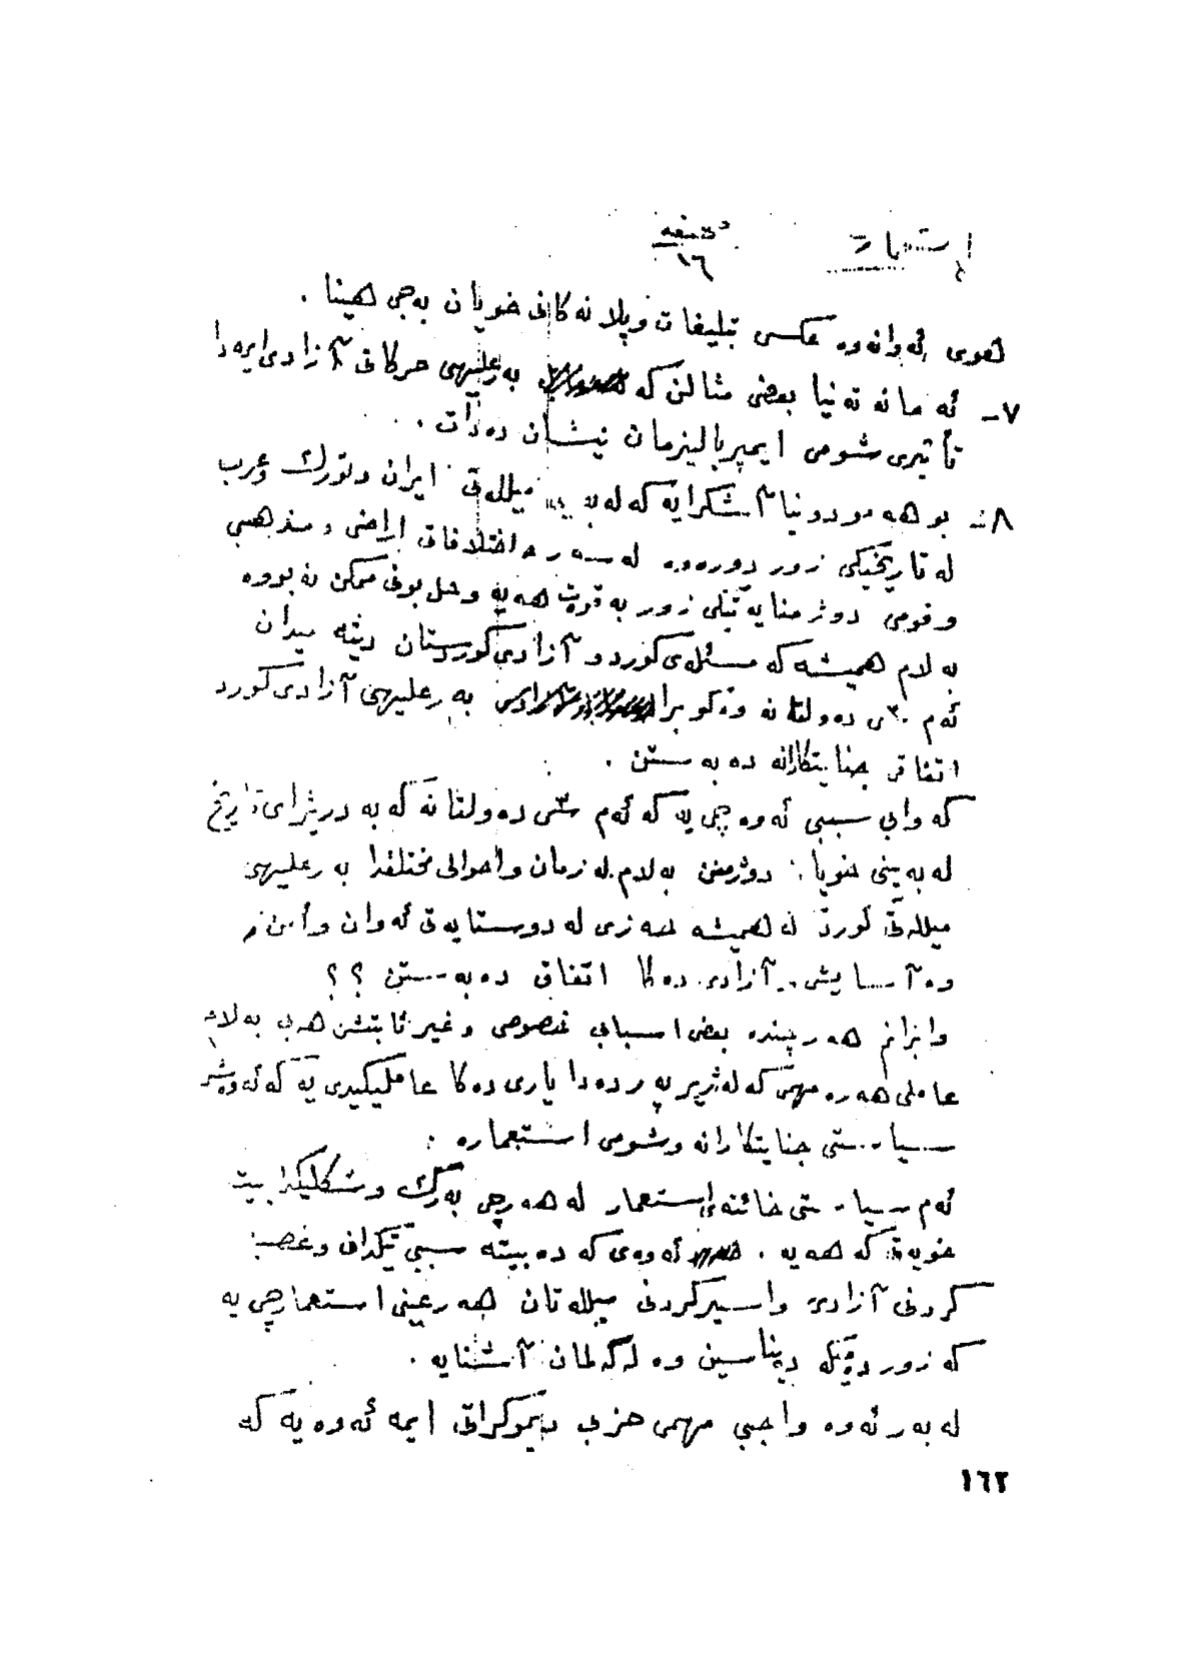 ١٦
هوی ئەوانەوە عکسی تبلیغات و پلانەکانی خویان بەجی هینا .
٧ـ ئەمانە تەنیا بعضی مثالن کە بەرعلیهی حرکاتی آزادی ایرەدا
تأثیری شومی ایمپریالیزمان نیشان دەدات ...
٨ـ بو هەمو دونیا آشکرایە کە لە میللەتی ایران و تورك و عرب
لە تاریخیکی زور دورەوە لە سەر اختلافاتی اراضی و مذهبی
و قومی دوژمنایەتیکی زور بە قوەت هەیە و حل بونی ممکن نە بووە
بەلام همیشە کە مسئلەی کورد و آزادی کوردستان دیتە میدان
ئەم ٣ـی دەولتانە وەکو برا بەرعلیهی آزادی کورد
اتفاقی جنایتکارانە دەبەستن .
کە وابی سببی ئەوە چی یە کە ئەم سی دەولتانە کە بە دریژای تاریخ
لە بەینی خویان دوژمنن بەلام لە زمان و احوالی مختلفدا بەرعلیهی
میللەتی کورد کە همیشە حەزی لە دوستایەتی ئەوان و أمن
وە آسایش و آزادی دەکا اتفاق دەبەستن ؟؟
وابزانم هەرچندە بعض اسبابی خصوصی و غیر ثابتشن هەبی بەلام
عاملی هەرە مهم کە لە ژیر پەردەدا یاری دەکا عاملیکیدی یە کە ئەوەش
سیاستی جنایتکارانە و شومی استعمارە .
ئەم سیاستی خائنەی استعمار لە هەرچی بەرگ و شکلیکدا بیت
خویەتی کە هەیە . ئەوەی کە دەبیتە سببی تیکدان و غصب
کردنی آزادی و اسیرکردنی میللەتان هەر عینی استعمارچی یە
کە زور دەیناسین وە لەگەلمان آشنایە .
لەبەر ئەوە واجبی مهمی حزبی دیموکراتی ایمە ئەوە یە کە
١٦٢